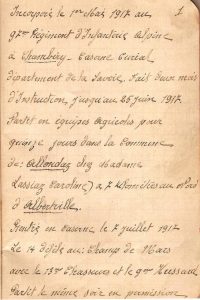 1
Incorporé le 1er Mai 1917 au
97me Régiment d'Infanterie Alpine
à Chambéry. Caserne Curial
département de la Savoie. Fait deux mois
d'Instruction, jusqu'au 25 juin 1917.
Partit en équipes Agricoles pour
quinze jours dans la Commune
de: Allondaz chez Madame
Lassiaz Caroline) à 7 kilomètres au Nord
d'Albertville.
Rentré en caserne le 7 juillet 1917
Le 14 défilé au: Champ de Mars
avec le 13me Chasseurs et le 9me Hussard
Partit le même soir en permission